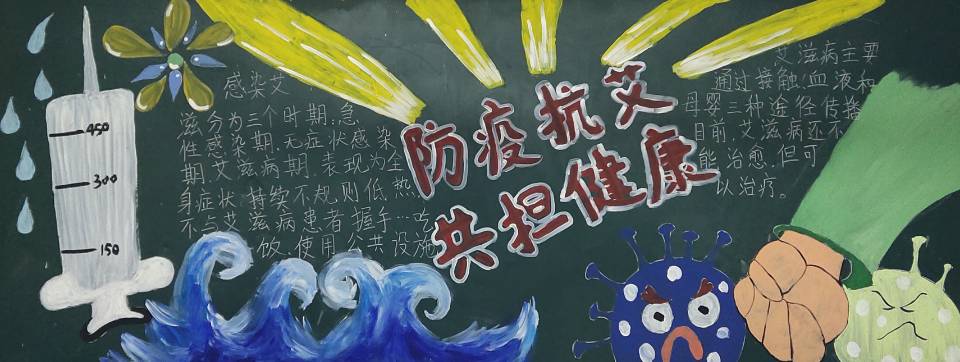 450
300
150
感染艾
滋分为三个时期:急
性感染期,无症状感染
期,艾滋病期,表现为全
身症状,持续不规则低热,
不与艾滋病患者握手…吃
饭,使用公共设施
防疫抗艾
共担健康
艾滋病主要
通过接触!血液和
母婴三种途径传播
目前,艾滋病还不
能治愈,但可
以治疗。